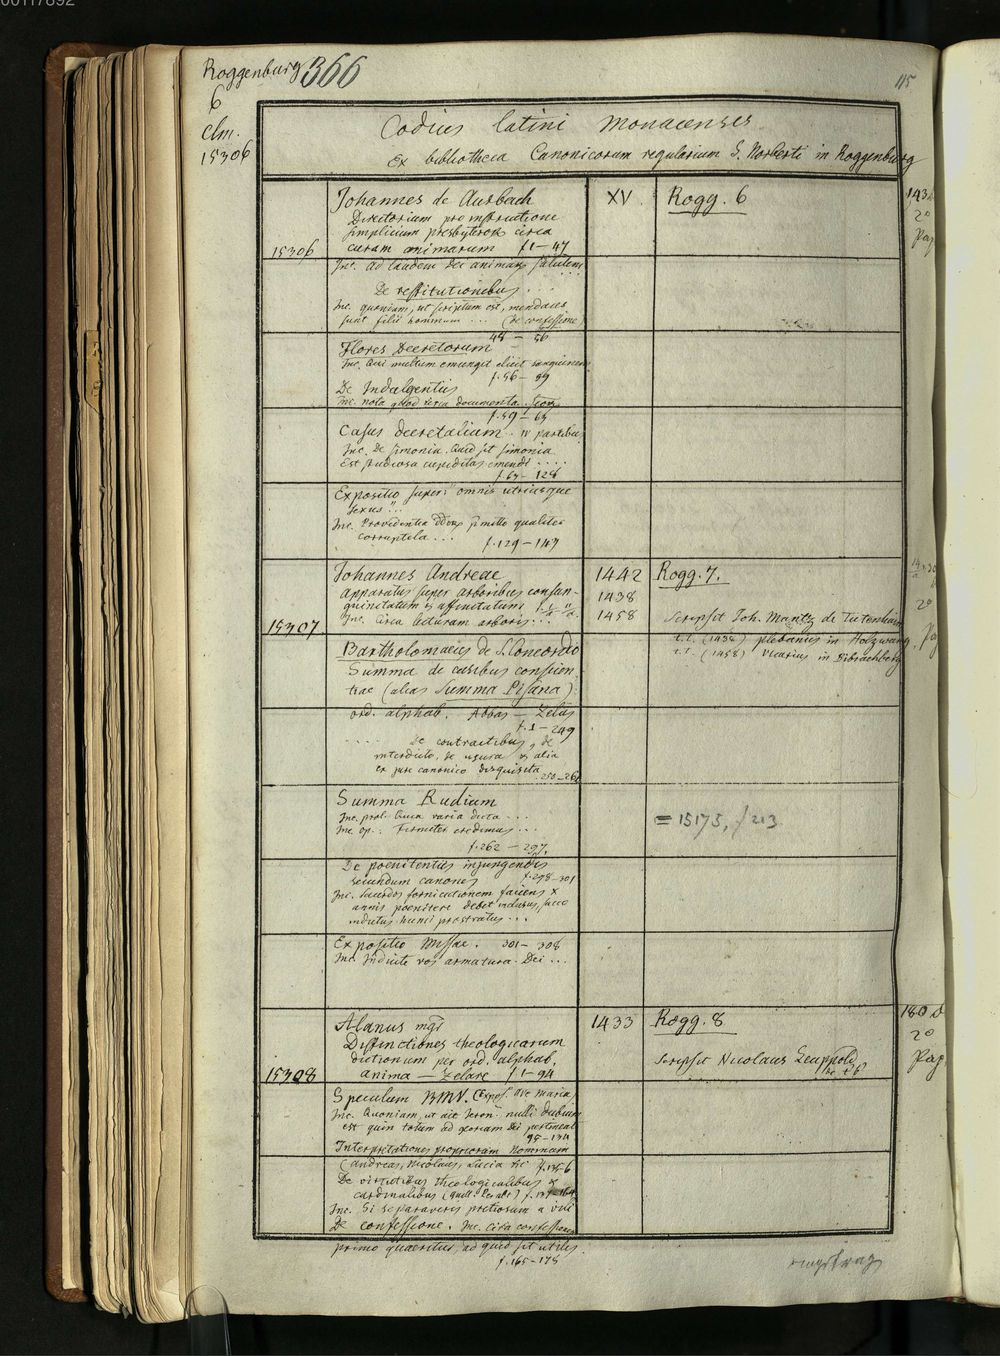 00117892
Roggenburg 366
6
clm.
15306
115
Codices latini monacenses
Ex bibliotheca Canonicorum regularium S. Norberti in Roggenburg
15306
Johannes de Aurbach
Directorium pro instructione
simplicium presbyterorum circa
curam animarum f. 1–47
XV.
Rogg. 6
2º
Pap
Inc. Ad laudem dei animarum salutem
De restitutionibus . . .
Inc. quoniam, ut scriptum est, mendaces
sunt filii hominum . . . (de confessione)
48 – 56
Flores Decretorum
Inc. Qui multum emungit elicit sanguinem
f. 56 – 59
De Indulgentiis
Inc. nota quod
f. 59 – 65
Casus decretalium. IV partibus
Inc. De simonia. Quid sit simonia
Est studiosa cupiditas emendi . . . .
f. 65 – 128
Expositio super: "omnis utriusque
sexus" . .
Inc. Providentia qualiter
corruptela . . .
f. 129 – 147
15307
Johannes Andreae
apparatus super arboribus consan-
guinitatum et affinitatum
Inc. Circa lecturam arboris . . .
1442
1438
1458
Rogg. 7.
Scripsit Joh. Mantz de Tutenheim
t. t. (1438) plebanus in Holzwang,
t. t. (1458) vicarius in Bibrachberg
2º
Bartholomaeus de S. Concordo
Summa de casibus conscien-
tiae (alias Summa Pisana)
ord. alphab. Abbas – Zelus
f. 1 – 249
. . . . . De contractibus, de
interdicto, de usura et alia
ex jure canonico disquisita
250–261
Summa Rudium
Inc. prol. Quia varia dicta . . .
Inc. op.: Firmiter credimus . . .
f. 262 – 297.
= 15175, f 213.
De poenitentiis injungendis
secundum canones f. 298–301
Inc. Sacerdos fornicationem faciens X
annis poenitere debet inclusus, sacco
indutus humi prostratus . . .
Expositio Missae. 301 – 308
Inc. Induite vos armatura Dei . . .
15308
Alanus mgr
Distinctiones theologicarum
dictionum per ord. alphab.
anima – Zelare f 1–94
1433
Rogg. 8
Scripsit Nicolaus Leuppold
180
2º
Pap.
Speculum BMV. (Expos. Ave Maria)
Inc. Quoniam, ut ait Jeron. nulli dubium
est quin totum ad gloriam Dei pertineat
95–134
Interpretationes propriorum Nominum
(Andreas, Nicolaus, Lucia etc. f. 135–6
De virtutibus theologicalibus et
cardinalibus
Inc. Si separaveris pretiosum a vili
De confessione. Inc. Circa confessionem
primo quaeritur, ad quid sit utilis
f. 165–178